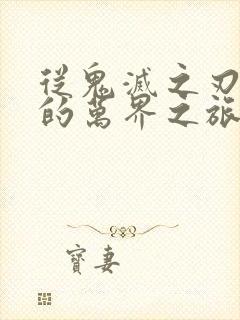 從鬼滅之刃
的萬界之旅
寶妻